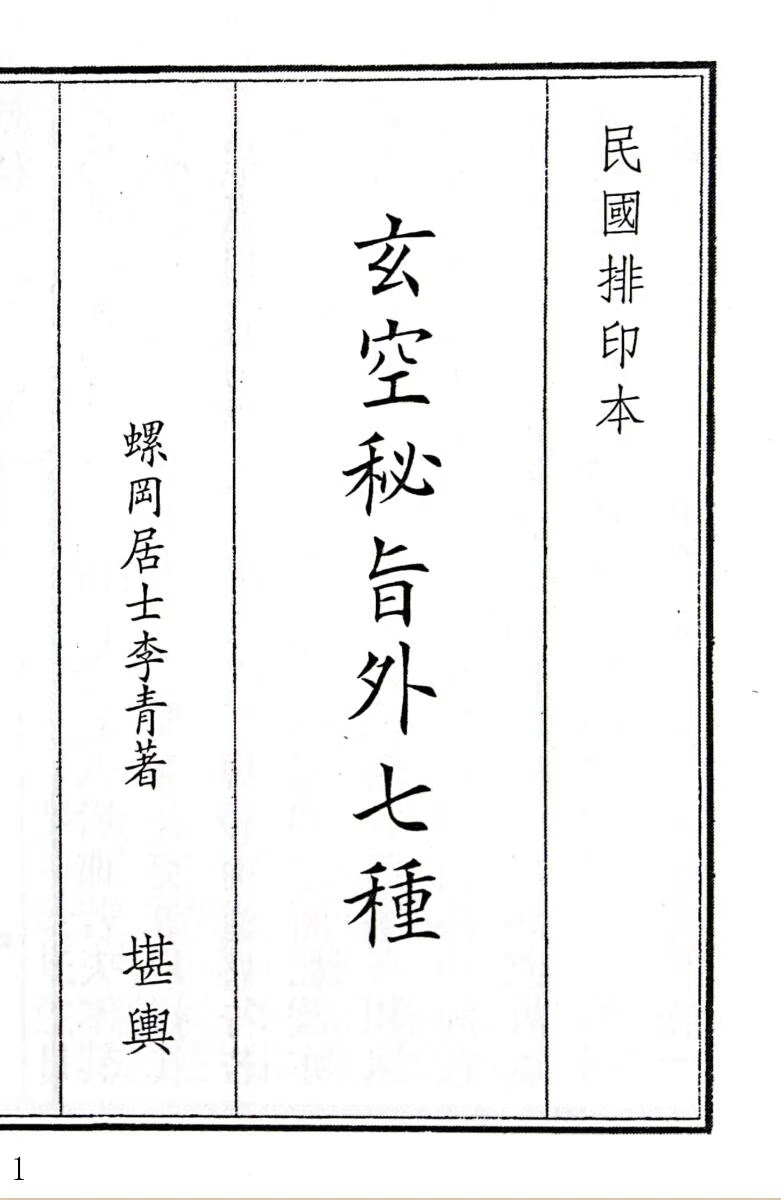 民國排印本
玄空秘旨外七種
螺岡居士李青著 堪輿
1